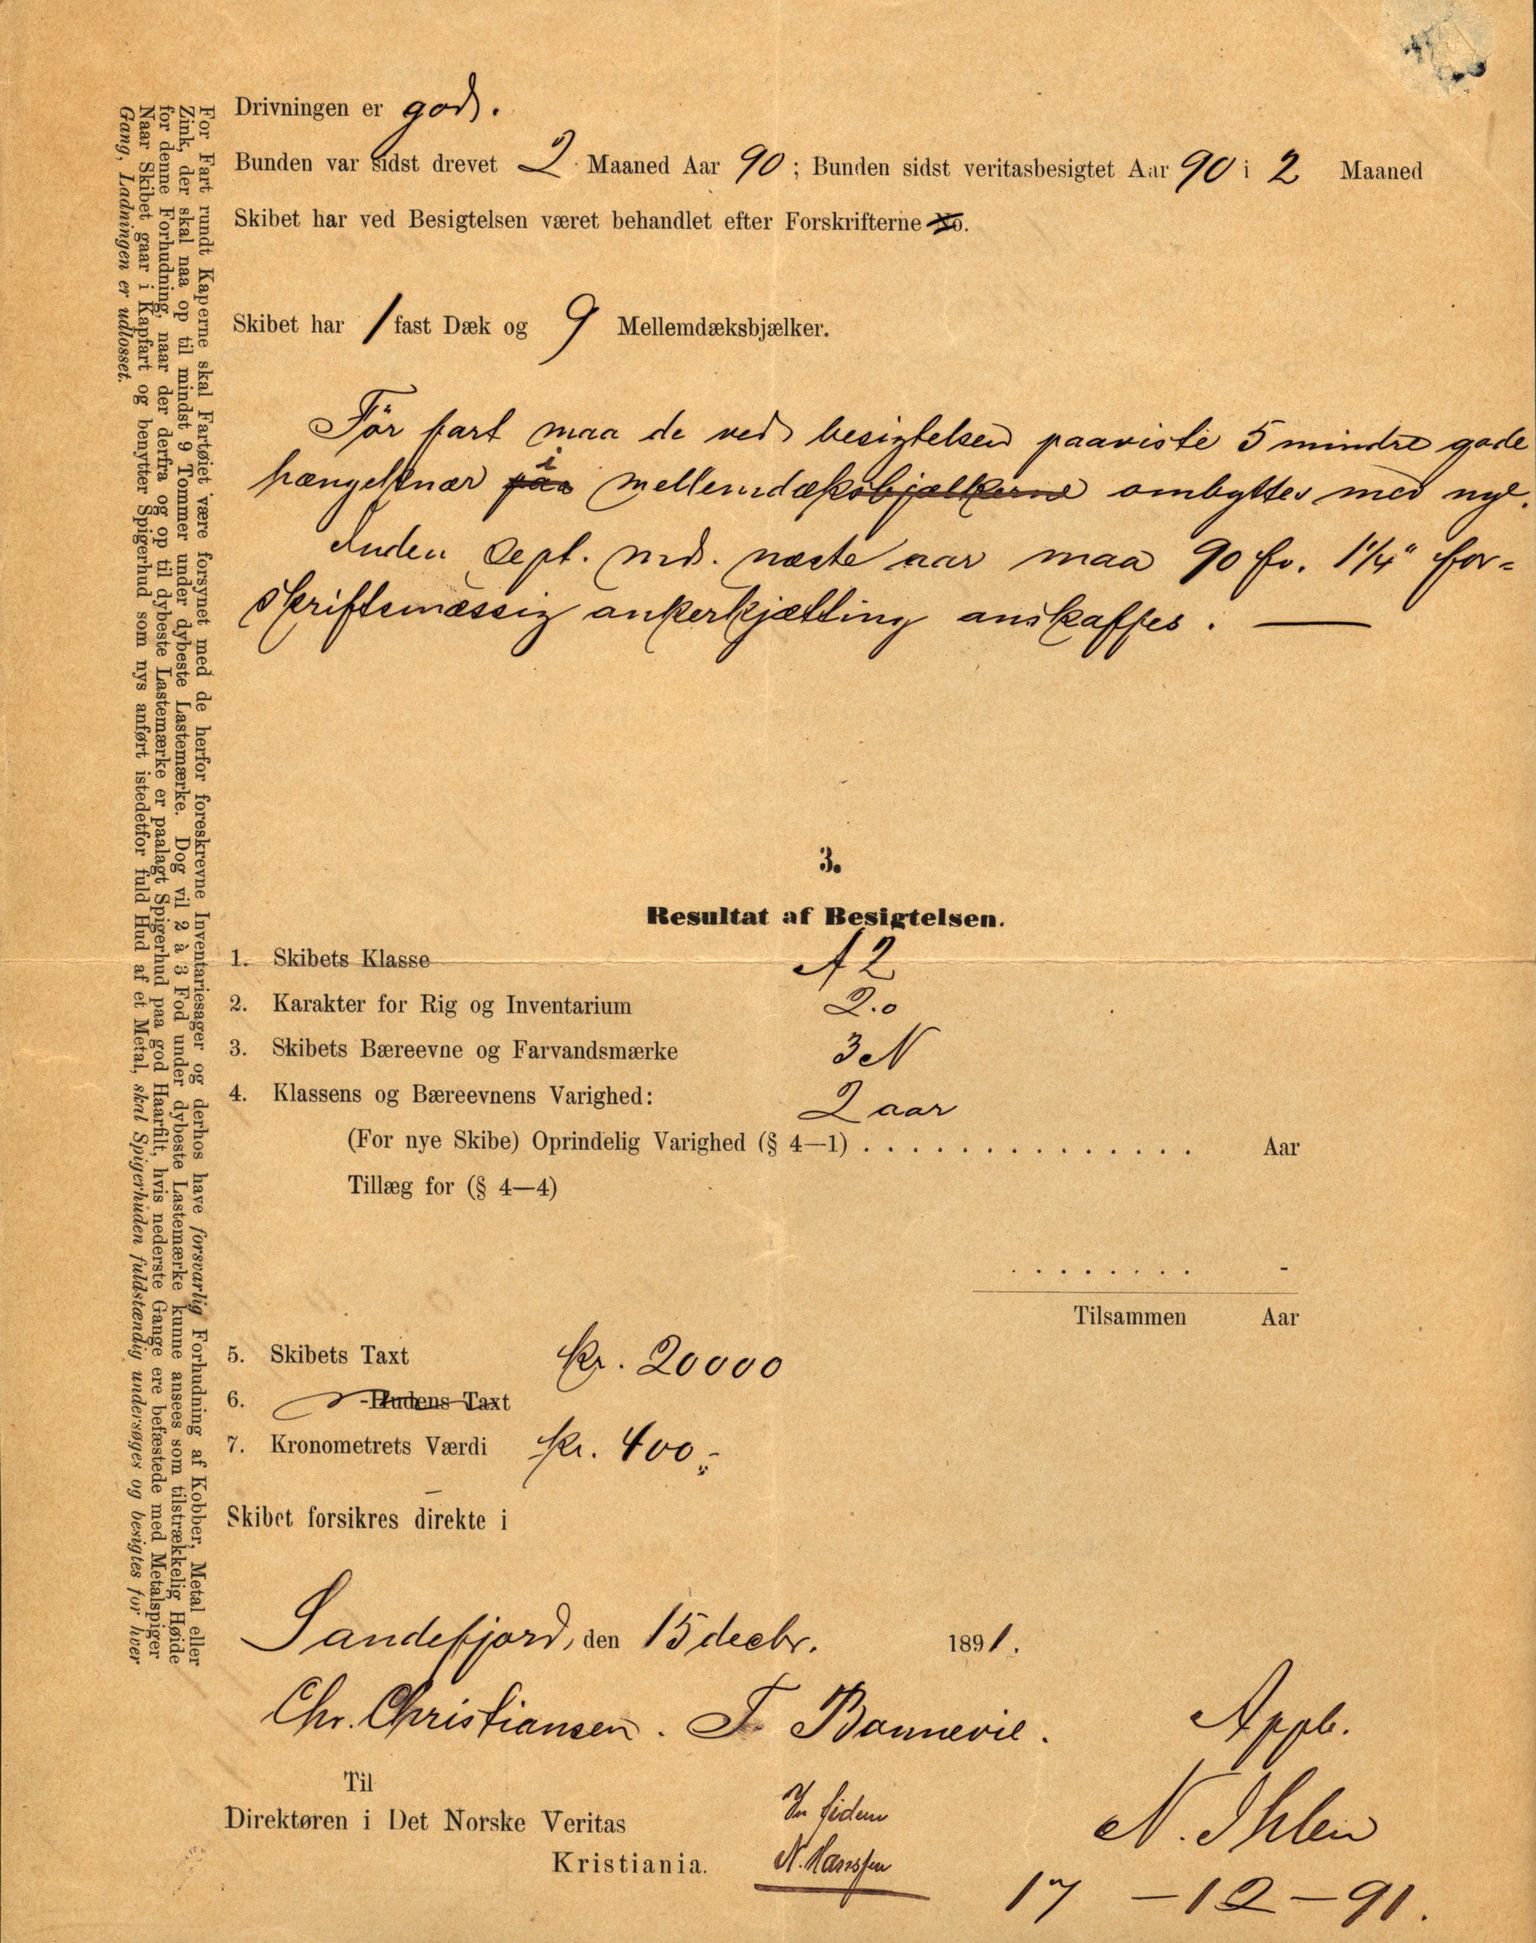 Drivningen er god.
Bunden var sidst drevet 2 Maaned Aar 90; Bunden sidst veritasbesigtet Aar 90 i 2 Maaned
Skibet har ved Besigtelsen været behandlet efter Forskrifterne No.
Skibet har 1 fast Dæk og 9 Mellemdæksbjælker.
Før fart maa de ved besigtelsen paaviste 5 mindre gode
hængeknær paa i mellemdæksbjælkerne ombyttes med nye.
Inden Sept. md. næste aar maa 90 fv. 1 1/4" for-
skriftsmæssig ankerkjætting anskaffes. —
3.
Resultat af Besigtelsen.
1. Skibets Klasse A 2
2. Karakter for Rig og Inventarium 2.0
3. Skibets Bæreevne og Farvandsmærke 3 N
4. Klassens og Bæreevnens Varighed: 2 aar
(For nye Skibe) Oprindelig Varighed (§ 4—1) . . . . . . . . . . . . . . . Aar
Tillæg for (§ 4—4)
. . . . . . . . -
Tilsammen Aar
5. Skibets Taxt kr. 20000
6. -Hudens Taxt
7. Kronometrets Værdi kr. 400,-
Skibet forsikres direkte i
Sandefjord, den 15 decbr. 1891.
Chr. Christiansen. F Bonnevie. Appb.
Til
Direktøren i Det Norske Veritas
Kristiania.
N. Hanssen
N. Ihlen
17-12-91.
For Fart rundt Kaperne skal Fartøiet være forsynet med de herfor foreskrevne Inventariesager og derhos have forsvarlig Forhudning af Kobber, Metal eller
Zink, der skal naa op til mindst 9 Tommer under dybeste Lastemærke. Dog vil 2 à 3 Fod under dybeste Lastemærke kunne ansees som tilstrækkelig Høide
for denne Forhudning, naar der derfra og op til dybeste Lastemærke er paalagt Spigerhud paa god Haarfilt, hvis nederste Gange ere befæstede med Metalspiger
Naar Skibet gaar i Kapfart og benytter Spigerhud som nys anført istedetfor fuld Hud af et Metal, skal Spigerhuden fuldstændig undersøges og besigtes for hver
Gang, Ladningen er udlosset.